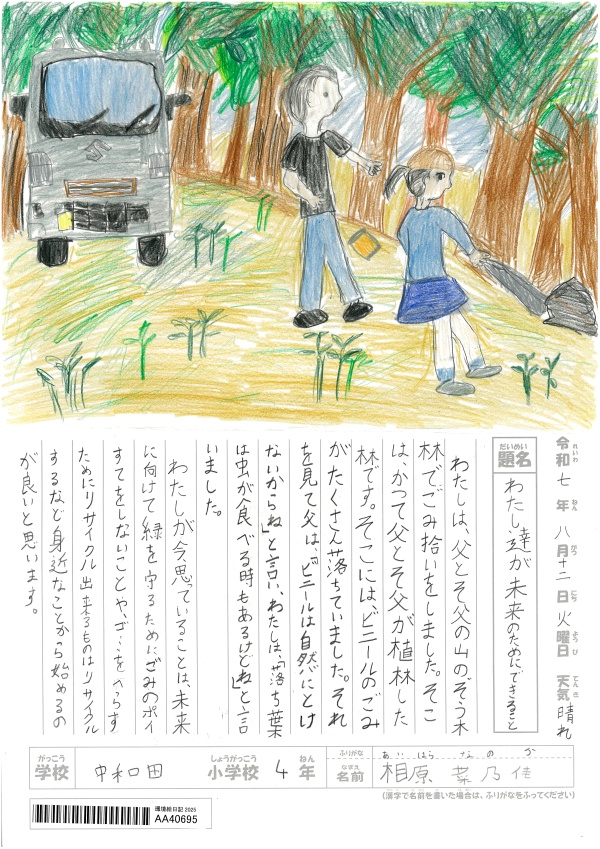 令和七年八月十二日火曜日 天気 晴れ
れいわ ねん がつ にち ようび てんき
だいめい
題名 わたし達が未来のためにできること
わたしは、父とそ父の山のぞう木
林でごみ拾いをしました。そこ
は、かつて父とそ父が植林した
林です。そこには、ビニールのごみ
がたくさん落ちていました。それ
を見て父は、「ビニールは自然にとけ
ないからね」と言い、わたしは、「落ち葉
は虫が食べる時もあるけどね」と言
いました。
わたしが今思っていることは、未来
に向けて緑を守るためにごみのポイ
すてをしないことや、ゴミをへらす
ためにリサイクル出来るものはリサイクル
するなど身近なことから始めるの
が良いと思います。
がっこう しょうがっこう ねん ふりがな あいはら なのか
学校 中和田 小学校 4年 なまえ 名前 相原 菜乃佳
(漢字で名前を書いた場合は、ふりがなをふってください)
環境絵日記 2025
AA40695